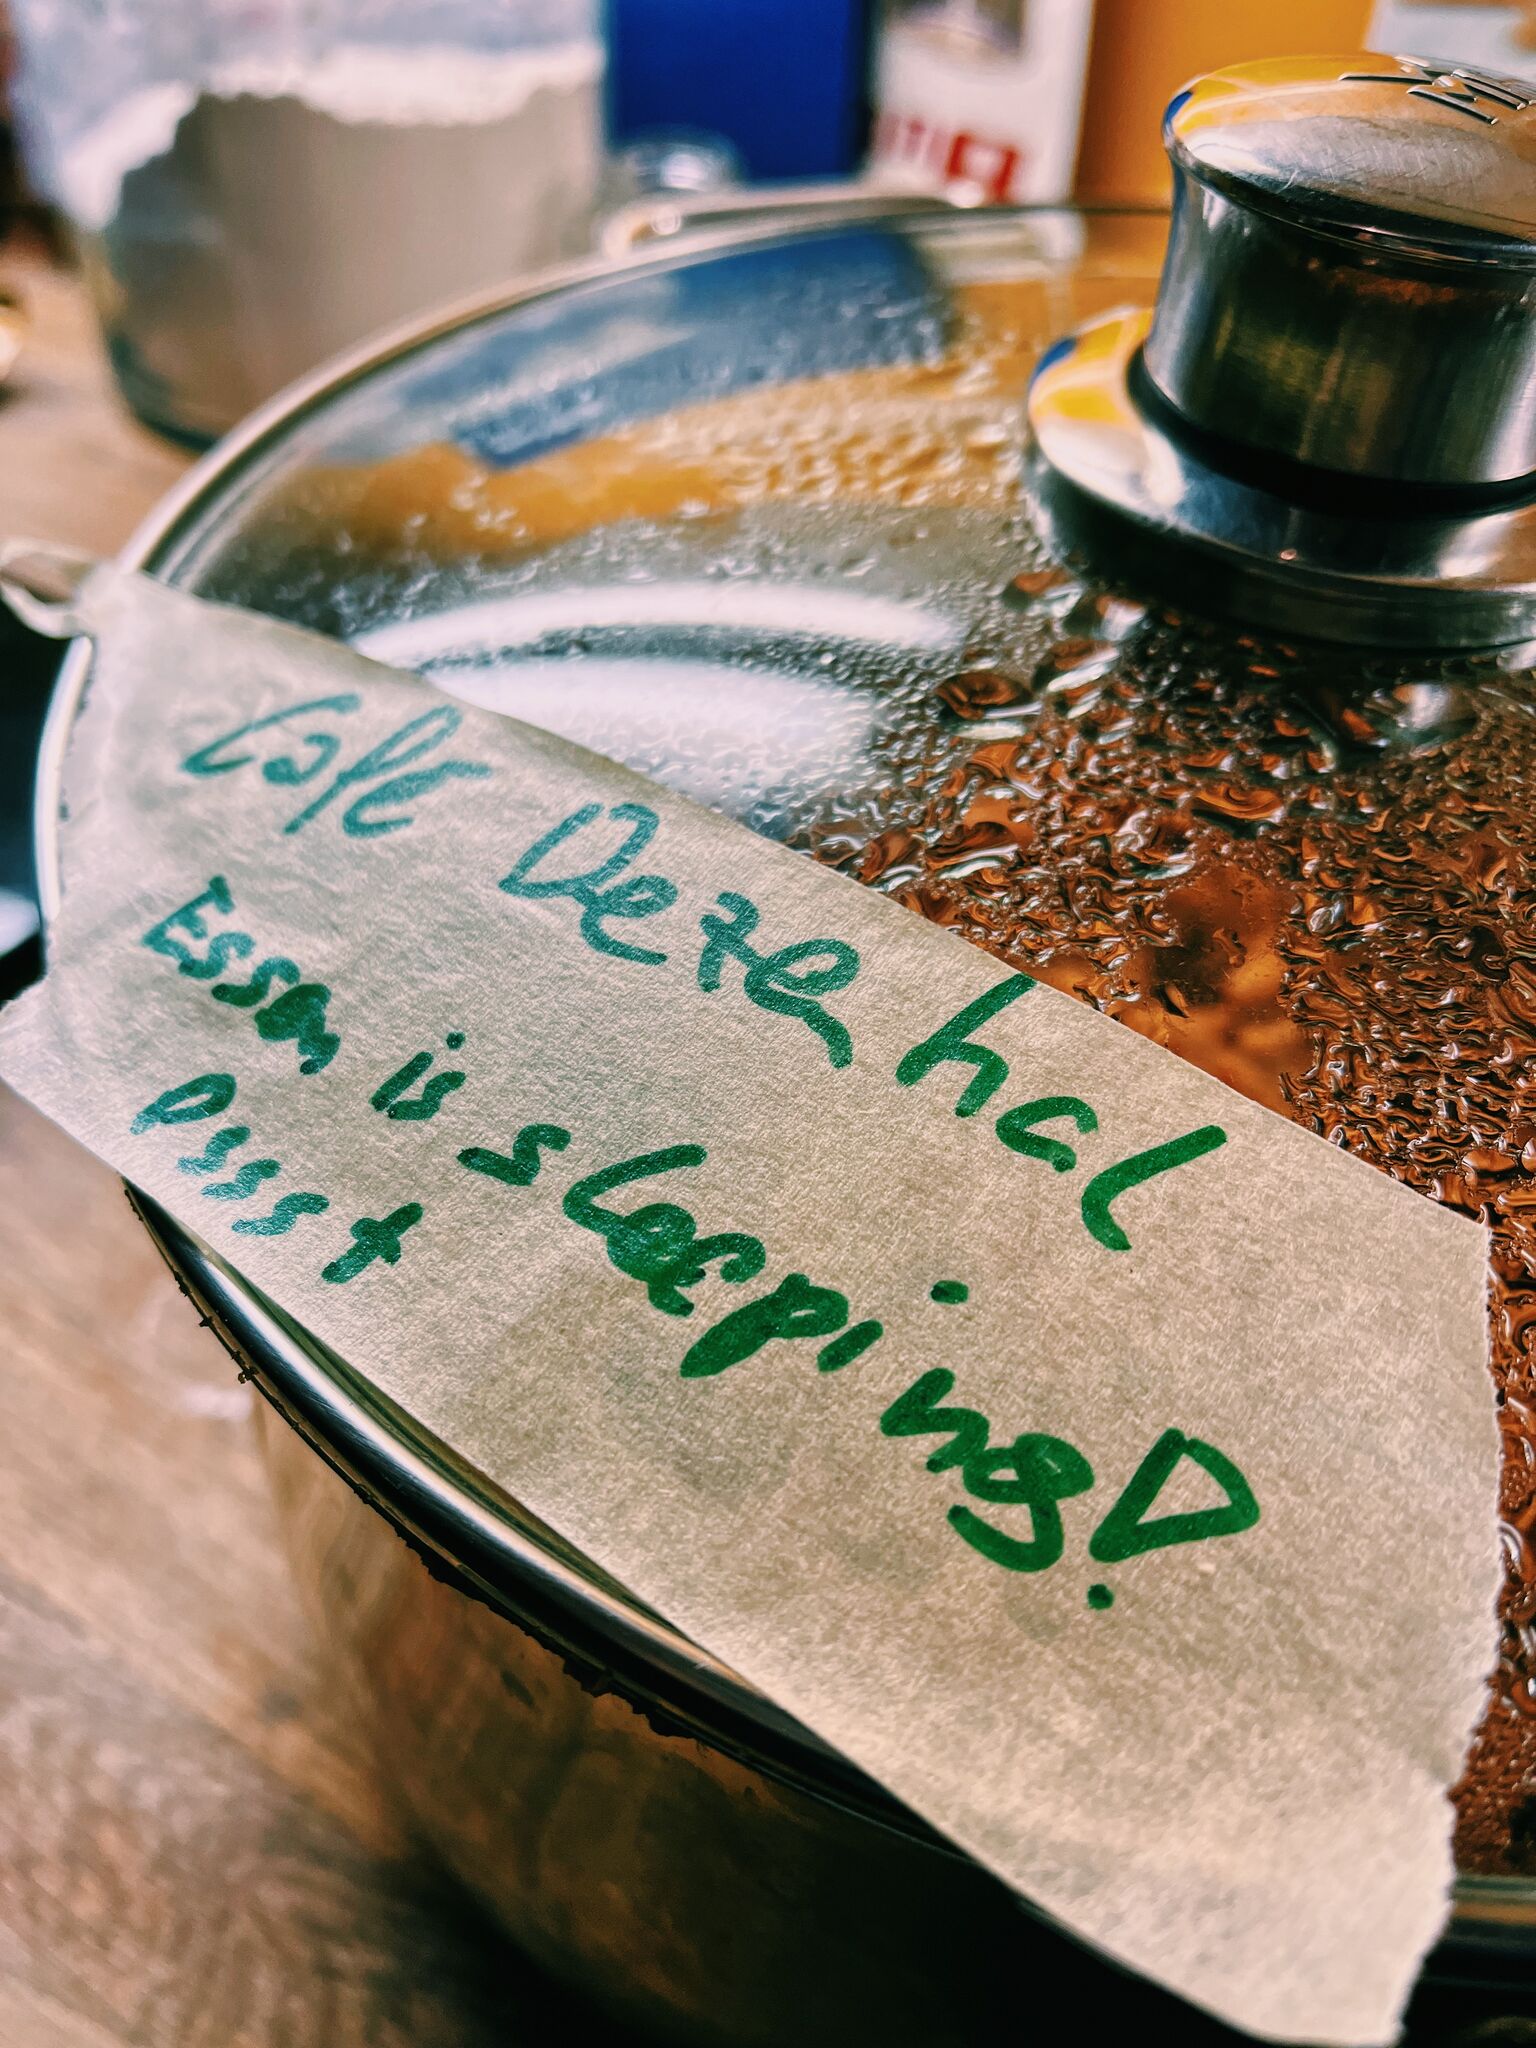 Cafe Dezehhal
Essen is sleeping!
Pssst